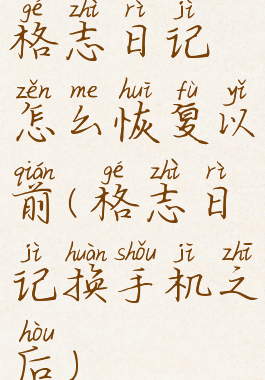 gé zhì rì jì
格志日记
zěn me huī fù yǐ
怎么恢复以
qián gé zhì rì
前(格志日
jì huàn shǒu jī zhī
记换手机之
hòu
后)